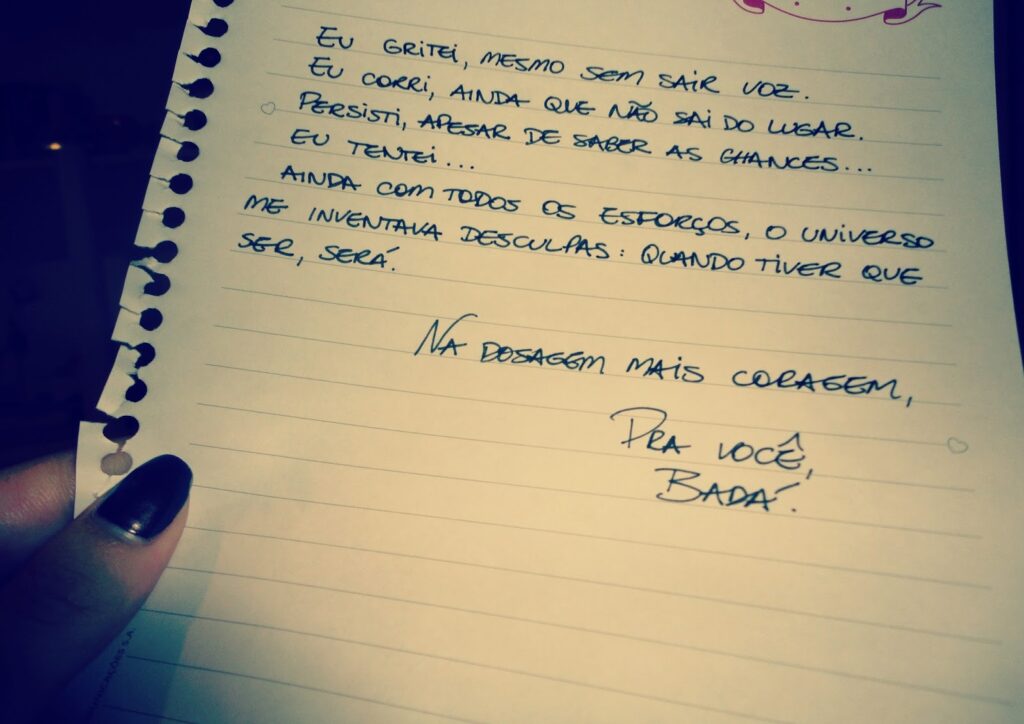 EU GRITEI, MESMO SEM SAIR VOZ.
EU CORRI, AINDA QUE NÃO SAI DO LUGAR.
PERSISTI, APESAR DE SABER AS CHANCES...
EU TENTEI...
AINDA COM TODOS OS ESFORÇOS, O UNIVERSO
ME INVENTAVA DESCULPAS: QUANDO TIVER QUE
SER, SERÁ.
NA DOSAGEM MAIS CORAGEM,
PRA VOCÊ,
BADÁ.